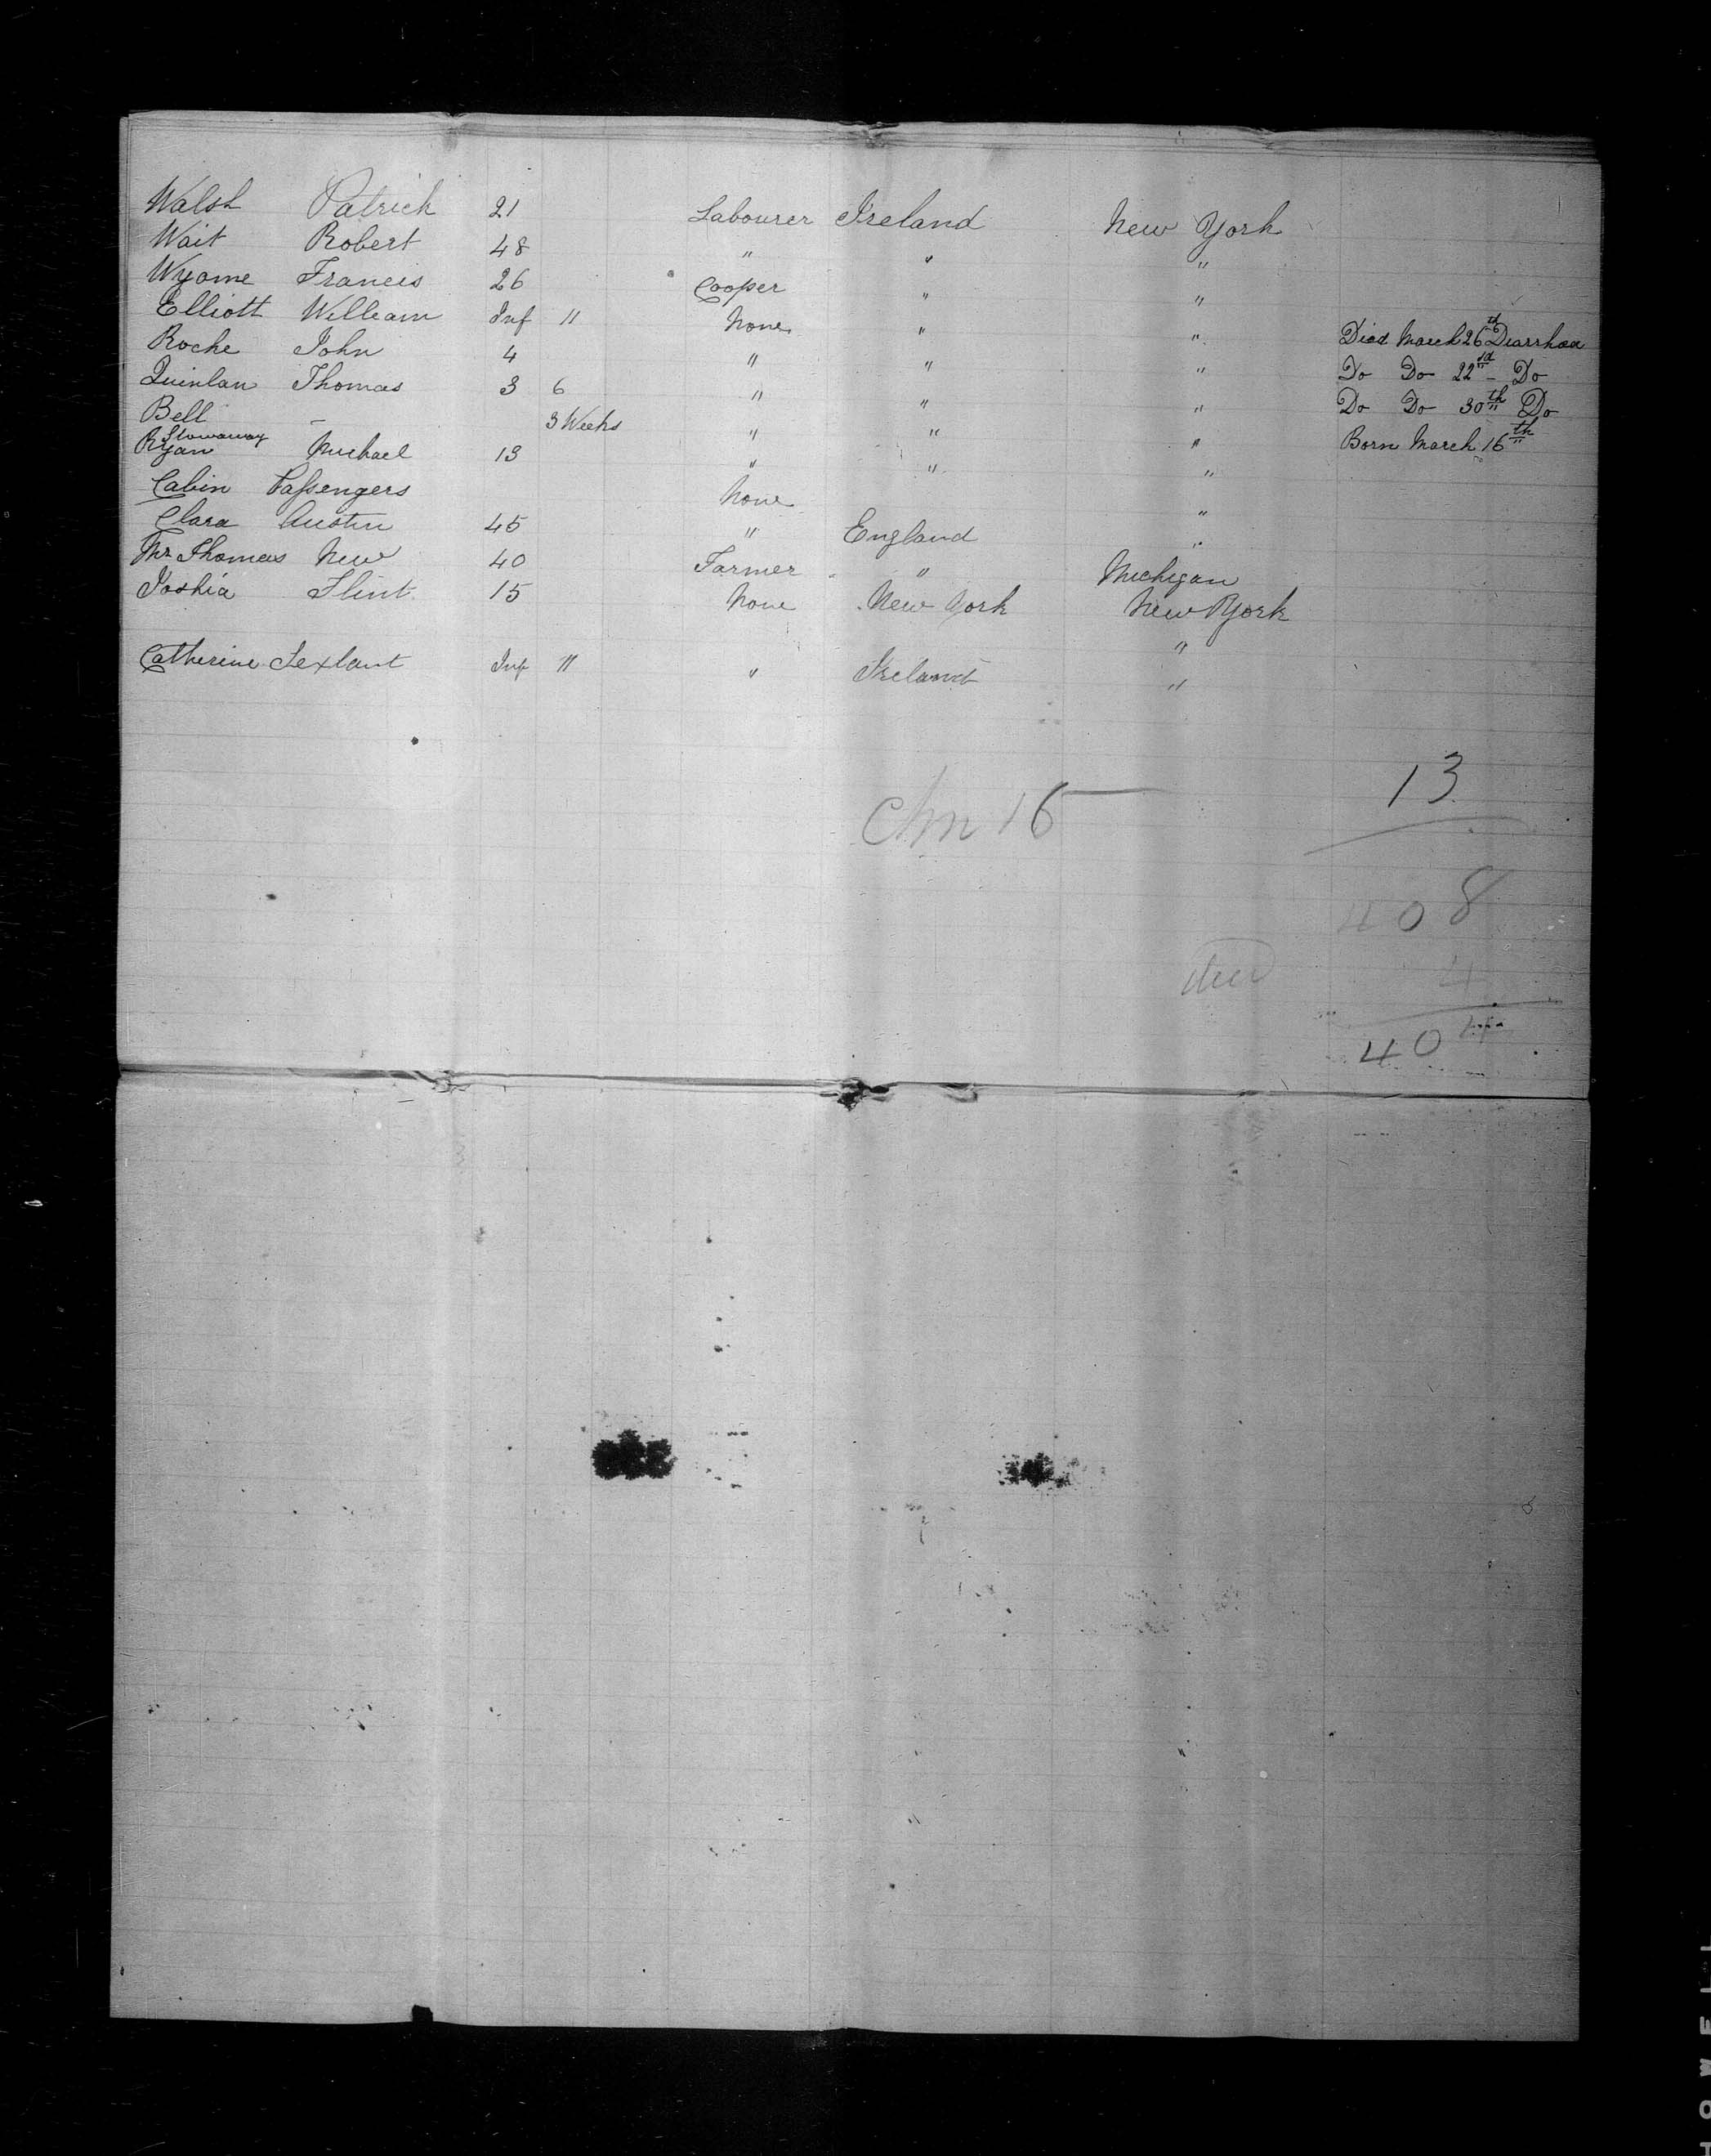 Walsh Patrick 21 Labourer Ireland New York
Wait Robert 48 " " "
Wyome Francis 26 Cooper " "
Elliott William Inf 11 None " " Died March 26th Diarrhoea
Roche John 4 " " " Do Do 22nd Do
Quinlan Thomas 3 6 " " " Do Do 30th Do
Bell — 3 Weeks " " " Born March 16th
Stowaway
Ryan Michael 13 " " "
Cabin Passengers None "
Clara Austin 45 " England "
Mr Thomas New 40 Farmer " Michigan
Joshia Flint 15 None New York New York
"
Catherine Sexlant Inf 11 " Ireland "
13
16
408
4
404